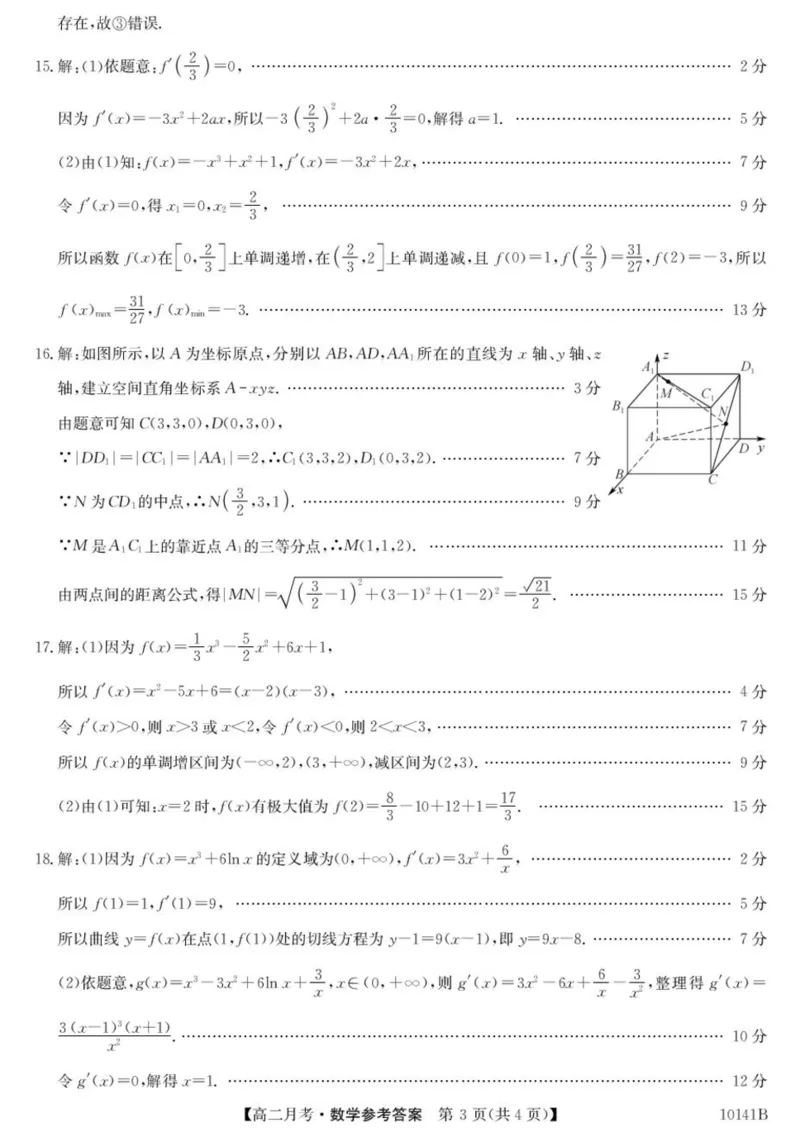 存在,故③错误.
15.解:(1)依题意:f′(2/3)=0, …… 2分
因为 f′(x)=-3x²+2ax,所以-3(2/3)²+2a·2/3=0,解得 a=1. …… 5分
(2)由(1)知:f(x)=-x³+x²+1,f′(x)=-3x²+2x, …… 7分
令 f′(x)=0,得 x₁=0,x₂=2/3, …… 9分
所以函数 f(x)在[0,2/3]上单调递增,在(2/3,2]上单调递减,且 f(0)=1,f(2/3)=31/27,f(2)=-3,所以
f(x)max=31/27,f(x)min=-3. …… 13分
16.解:如图所示,以 A 为坐标原点,分别以 AB,AD,AA₁所在的直线为 x 轴、y 轴、z
轴,建立空间直角坐标系 A-xyz. …… 3分
由题意可知 C(3,3,0),D(0,3,0),
∵|DD₁|=|CC₁|=|AA₁|=2,∴C₁(3,3,2),D₁(0,3,2). …… 7分
∵N 为CD₁的中点,∴N(3/2,3,1). …… 9分
∵M 是A₁C₁上的靠近点 A₁的三等分点,∴M(1,1,2). …… 11分
由两点间的距离公式,得|MN|=√((3/2-1)²+(3-1)²+(1-2)²)=√21/2. …… 15分
z
A₁
D₁
M
C₁
B₁
N
A
D y
B
C
x
17.解:(1)因为 f(x)=1/3x³-5/2x²+6x+1,
所以 f′(x)=x²-5x+6=(x-2)(x-3), …… 4分
令 f′(x)>0,则 x>3 或 x<2,令 f′(x)<0,则 2<x<3, …… 7分
所以 f(x)的单调增区间为(-∞,2),(3,+∞),减区间为(2,3). …… 9分
(2)由(1)可知:x=2 时,f(x)有极大值为 f(2)=8/3-10+12+1=17/3. …… 15分
18.解:(1)因为 f(x)=x³+6ln x 的定义域为(0,+∞),f′(x)=3x²+6/x, …… 2分
所以 f(1)=1,f′(1)=9, …… 5分
所以曲线 y=f(x)在点(1,f(1))处的切线方程为 y-1=9(x-1),即 y=9x-8. …… 7分
(2)依题意,g(x)=x³-3x²+6ln x+3/x,x∈(0,+∞),则 g′(x)=3x²-6x+6/x-3/x²,整理得 g′(x)=
3(x-1)³(x+1)/x². …… 10分
令 g′(x)=0,解得 x=1. …… 12分
【高二月考·数学参考答案 第 3 页(共 4 页)】 10141B